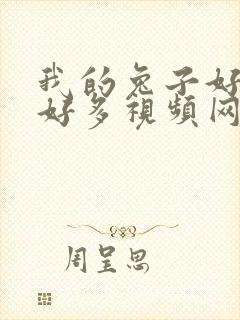 我的兔子好
好多視頻网
周呈思